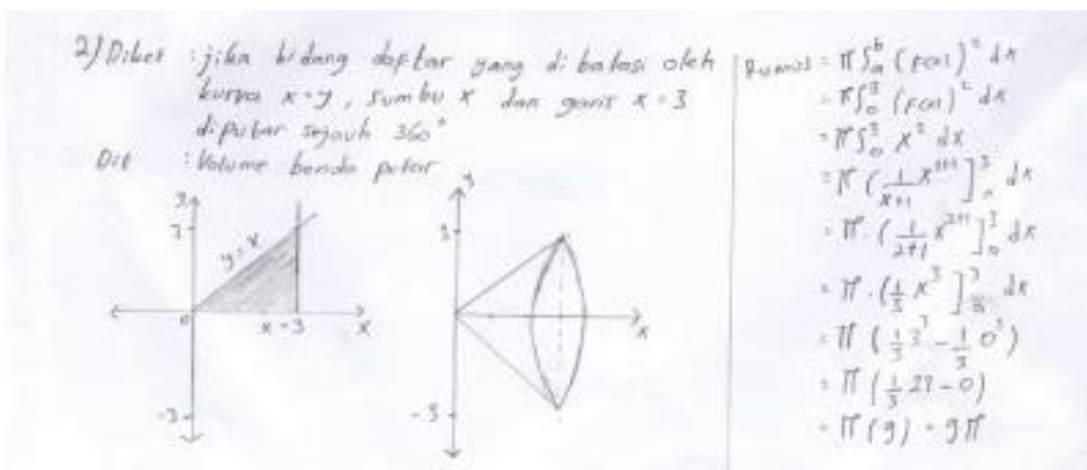 2) Diket : jika bidang daftar yang dibatasi oleh
kurva x=y, sumbu x dan garis x=3
diputar sejauh 360°
Dit : Volume benda putar
y
3
y = x
0
x = 3
x
-3
y
3
x
-3
Rumus = π∫ₐᵇ (F(x))² dx
= π∫₀³ (F(x))² dx
= π∫₀³ x² dx
= π (1/(x+1) xⁿ⁺¹]₀³ dx
= π · (1/(2+1) x²⁺¹]₀³ dx
= π · (1/3 x³]₀³ dx
= π (1/3 3³ - 1/3 0³)
= π (1/3 27 - 0)
= π (9) = 9π